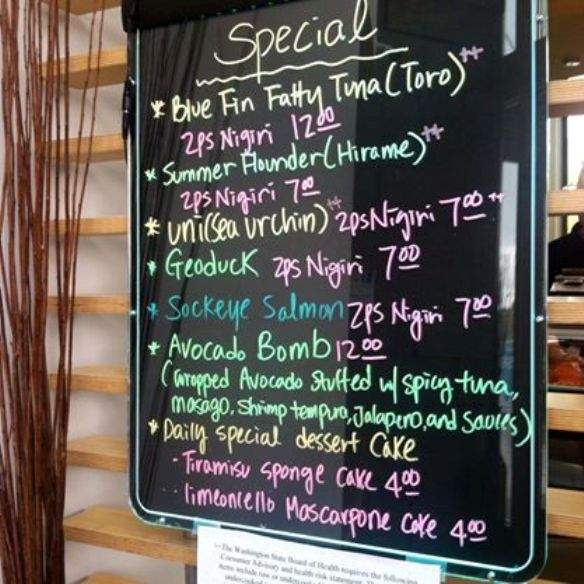 Special
* Blue Fin Fatty Tuna (Toro)++
2ps Nigiri 12.00
* Summer Flounder (Hirame)++
2ps Nigiri 7.00
* Uni (Sea urchin)++ 2ps Nigiri 7.00++
* Geoduck 2ps Nigiri 7.00
* Sockeye Salmon 2ps Nigiri 7.00
* Avocado Bomb 12.00
(Wrapped Avocado Stuffed w/ spicy tuna,
masago, Shrimp tempura, Jalapeno, and Sauces)
* Daily special dessert Cake
- Tiramisu sponge cake 4.00
- limoncello Mascarpone Cake 4.00
++The Washington State Board of Health requires the following
Consumer Advisory and health risk statement.
items include raw or undercooked